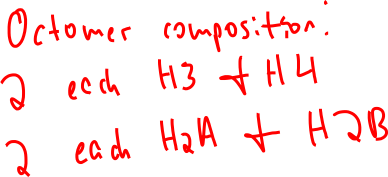 Octomer composition:
2 each H3 + H4
2 each H2A + H2B